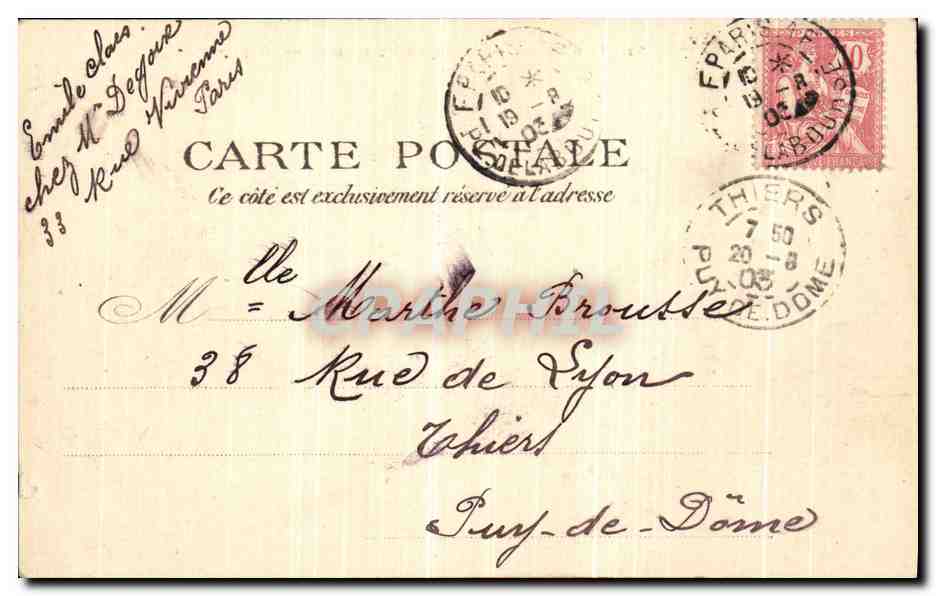 Emile Claes
chez Mr Degoix
33 Rue Vivienne
Paris
CARTE POSTALE
Ce côté est exclusivement réservé à l'adresse
Mlle Marthe Brousse
38 Rue de Lyon
Thiers
Puy-de-Dôme
PARIS
10 *
19 - 8
03
R. DE LABOURSE
PARIS
10 *
19 - 8
03
LABOURSE
10
THIERS
7 50
20 - 8
03
PUY-DE-DOME
CPAPHIL